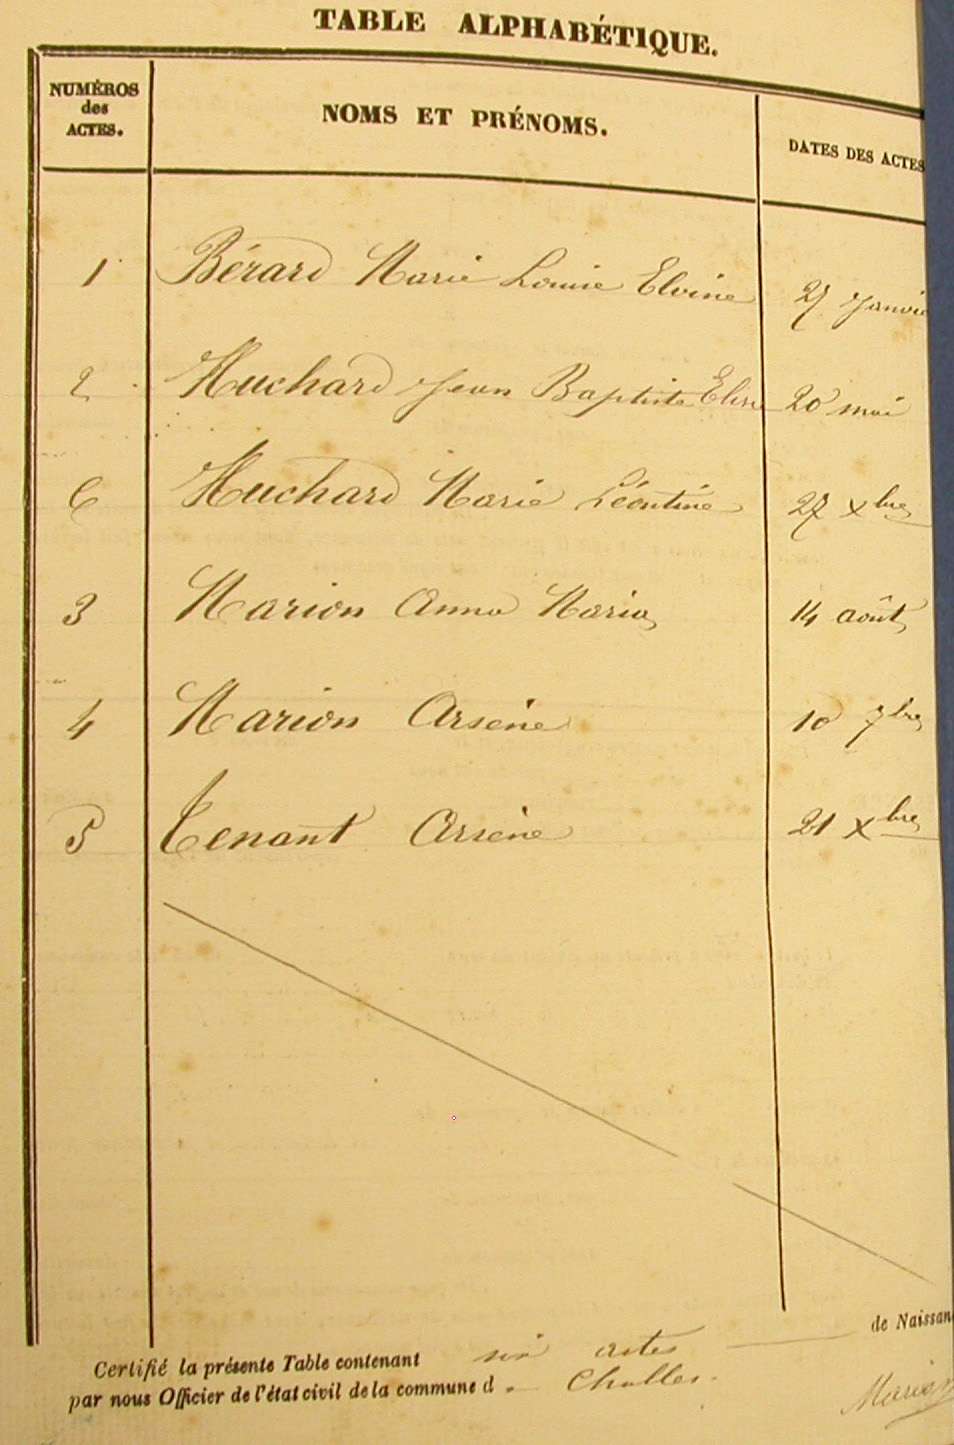 TABLE ALPHABÉTIQUE.
NUMÉROS
des
ACTES.
NOMS ET PRÉNOMS.
DATES DES ACTES
1 Bérard Marie Louise Elvine 27 Janvie
2 Huchard Jean Baptiste 20 mai
6 Huchard Marie Léontine 27 Xbre
3 Marion Anna Maria 14 août
4 Marion Arsène 10 7bre
5 Tenant Arsène 21 Xbre
Certifié la présente Table contenant six actes de Naissan
par nous Officier de l'état civil de la commune d Challes. Marion